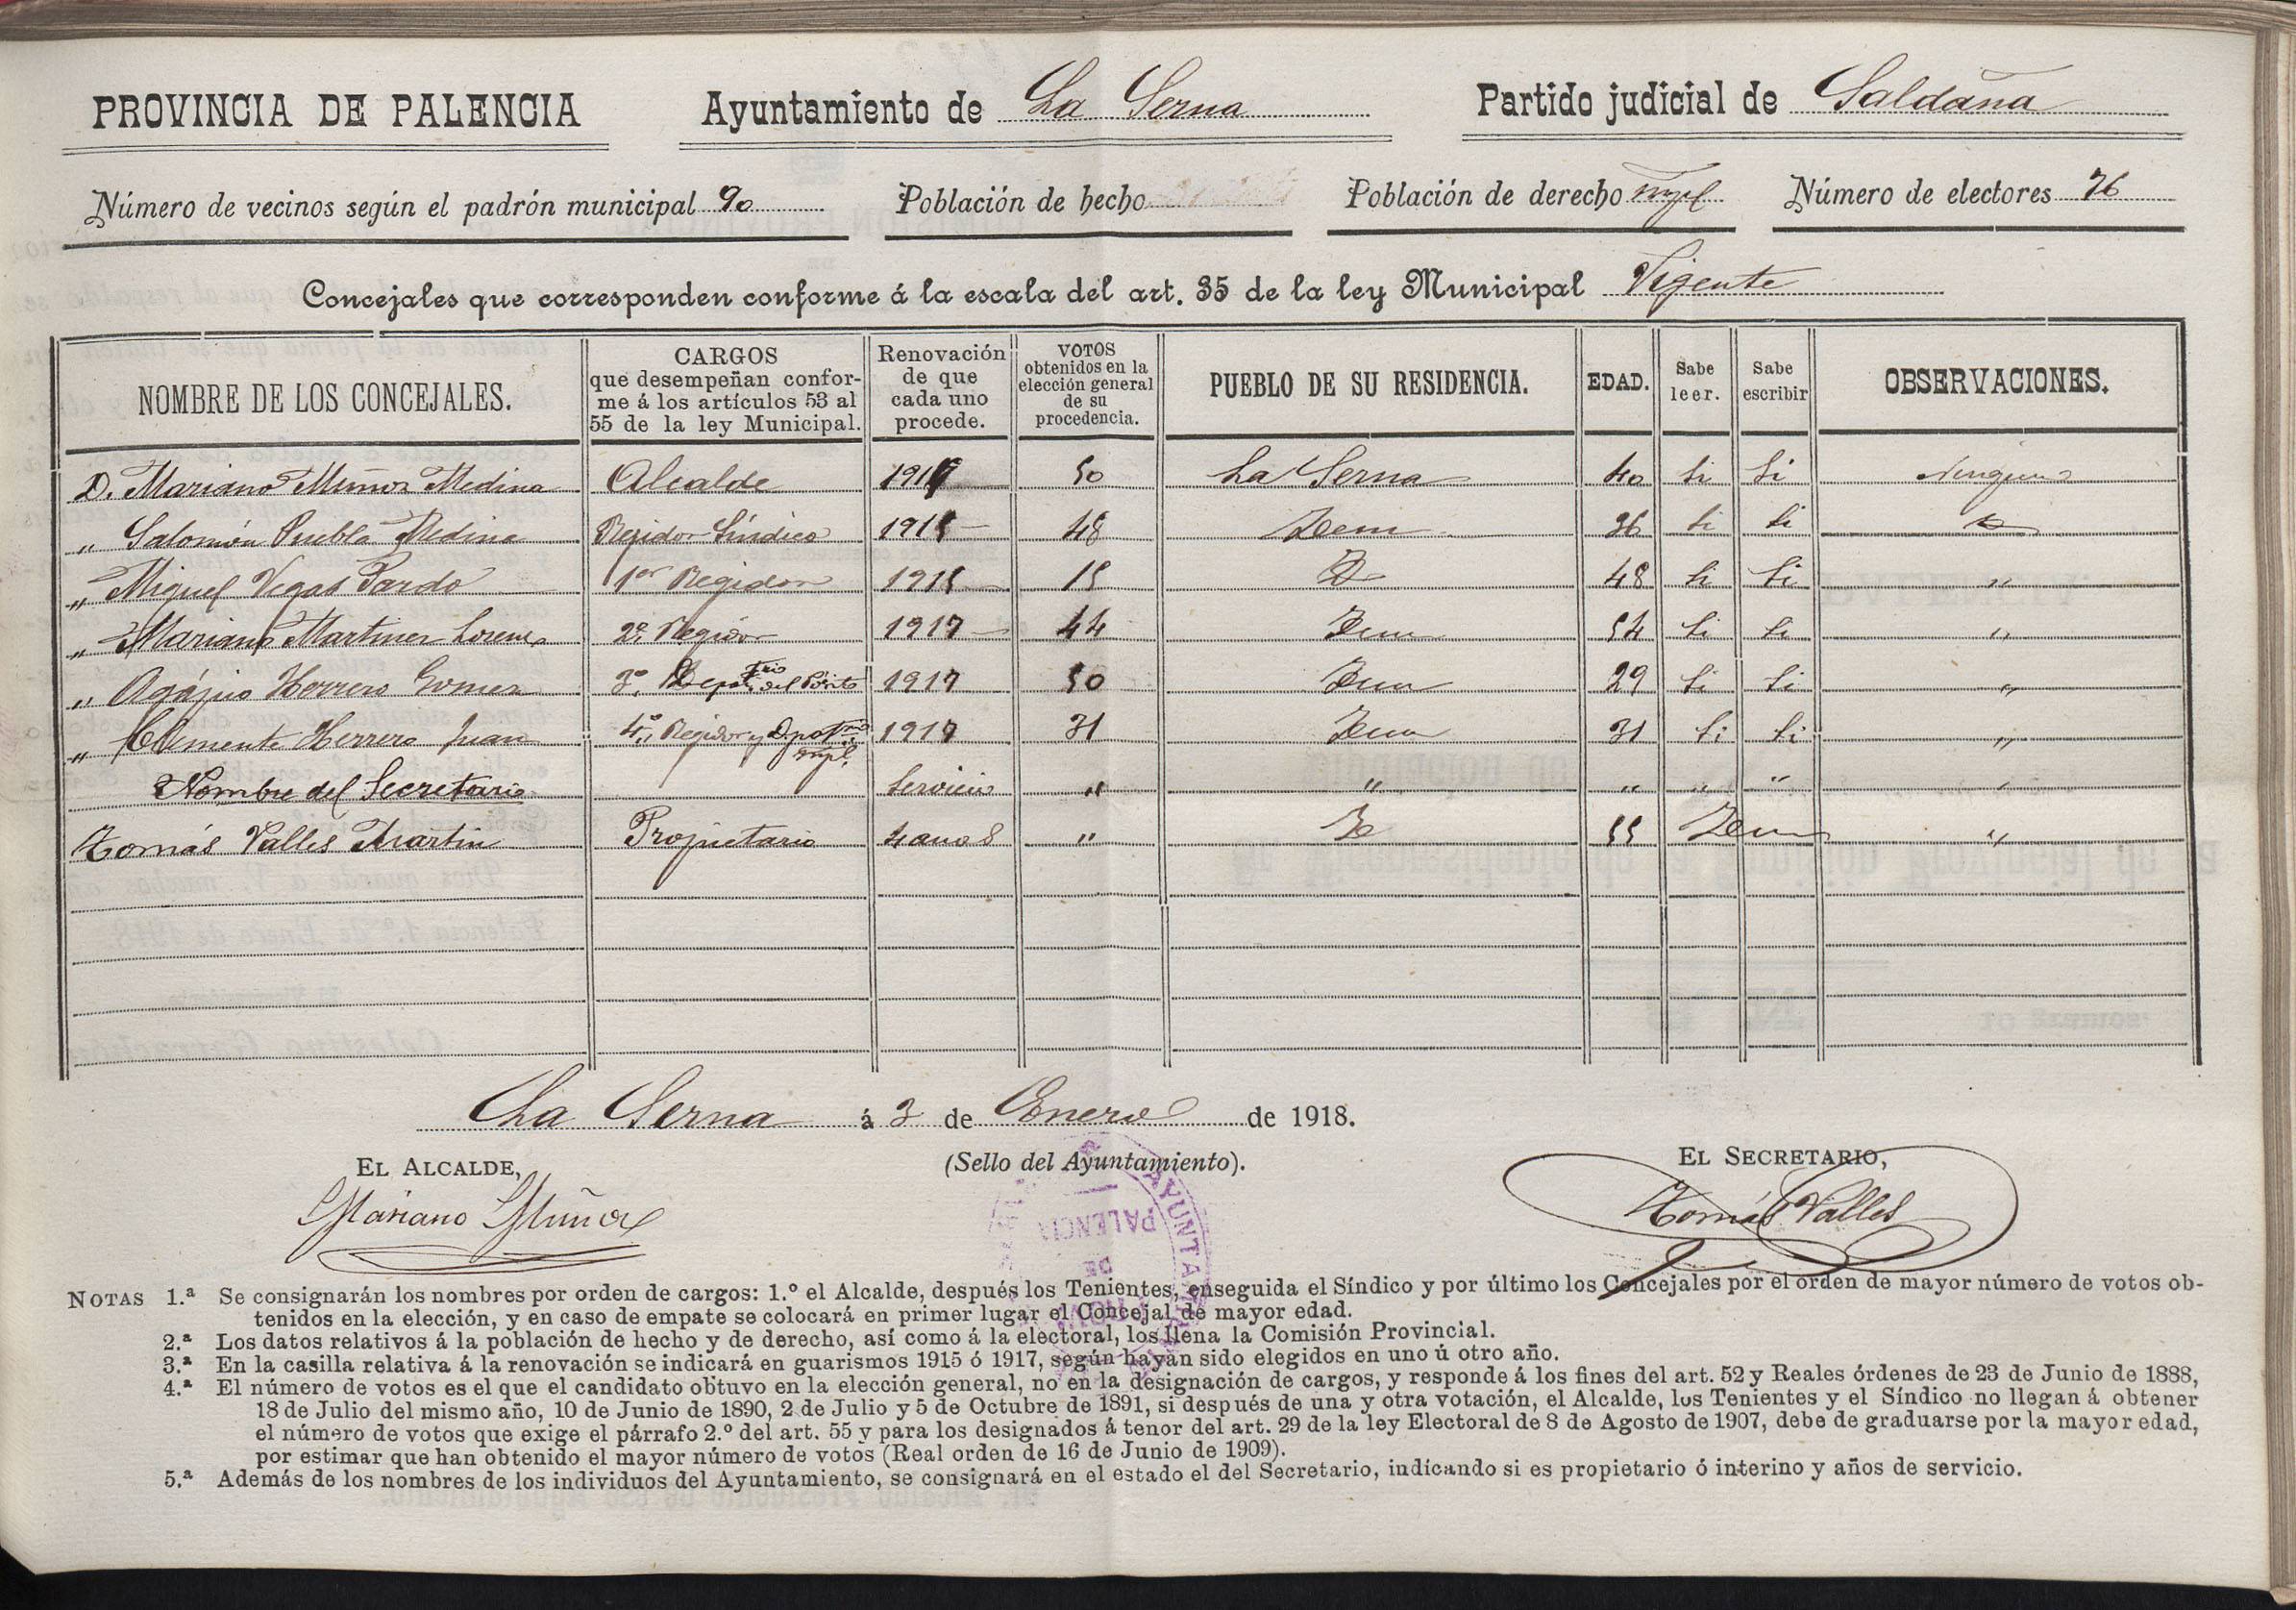 PROVINCIA DE PALENCIA Ayuntamiento de La Serna Partido judicial de Saldaña
Número de vecinos según el padrón municipal 90 Población de hecho Población de derecho Número de electores 76
Concejales que corresponden conforme á la escala del art. 35 de la ley Municipal Vigente
NOMBRE DE LOS CONCEJALES. CARGOS que desempeñan conforme á los artículos 53 al 55 de la ley Municipal. Renovación de que cada uno procede. VOTOS obtenidos en la elección general de su procedencia. PUEBLO DE SU RESIDENCIA. EDAD. Sabe leer. Sabe escribir OBSERVACIONES.
D. Mariano Muñoz Medina Alcalde 1917 50 La Serna 40 Si Si Ninguna
„ Salomón Puebla Medina Regidor Síndico 1915 48 Idem 36 Si Si
„ Miguel Vegas Pardo 1er Regidor 1915 15 Id 48 Si Si „
„ Mariano Martinez Lorenzo 2º Regidor 1917 44 Idem 54 Si Si „
„ Agápito Herrero Gomez 3º Depotrio del Pósito 1917 50 Idem 29 Si Si „
„ Clemente Herrero Juan 4º Regidor y Dpotrio mpl. 1917 31 Idem 31 Si Si „
Nombre del Secretario Servicio „ „ „ „ „ „
Tomás Valles Martin Propietario 4 anos „ Id 55 Idem „
La Serna á 3 de Enero de 1918.
EL ALCALDE, (Sello del Ayuntamiento). EL SECRETARIO,
Mariano Muñoz Tomás Valles
AYUNTAMIENTO
PALENCIA
DE
NOTAS 1.ª Se consignarán los nombres por orden de cargos: 1.º el Alcalde, después los Tenientes, enseguida el Síndico y por último los Concejales por el orden de mayor número de votos ob-
tenidos en la elección, y en caso de empate se colocará en primer lugar el Concejal de mayor edad.
2.ª Los datos relativos á la población de hecho y de derecho, así como á la electoral, los llena la Comisión Provincial.
3.ª En la casilla relativa á la renovación se indicará en guarismos 1915 ó 1917, según hayan sido elegidos en uno ú otro año.
4.ª El número de votos es el que el candidato obtuvo en la elección general, no en la designación de cargos, y responde á los fines del art. 52 y Reales órdenes de 23 de Junio de 1888,
18 de Julio del mismo año, 10 de Junio de 1890, 2 de Julio y 5 de Octubre de 1891, si después de una y otra votación, el Alcalde, los Tenientes y el Síndico no llegan á obtener
el número de votos que exige el párrafo 2.º del art. 55 y para los designados á tenor del art. 29 de la ley Electoral de 8 de Agosto de 1907, debe de graduarse por la mayor edad,
por estimar que han obtenido el mayor número de votos (Real orden de 16 de Junio de 1909).
5.ª Además de los nombres de los individuos del Ayuntamiento, se consignará en el estado el del Secretario, indicando si es propietario ó interino y años de servicio.